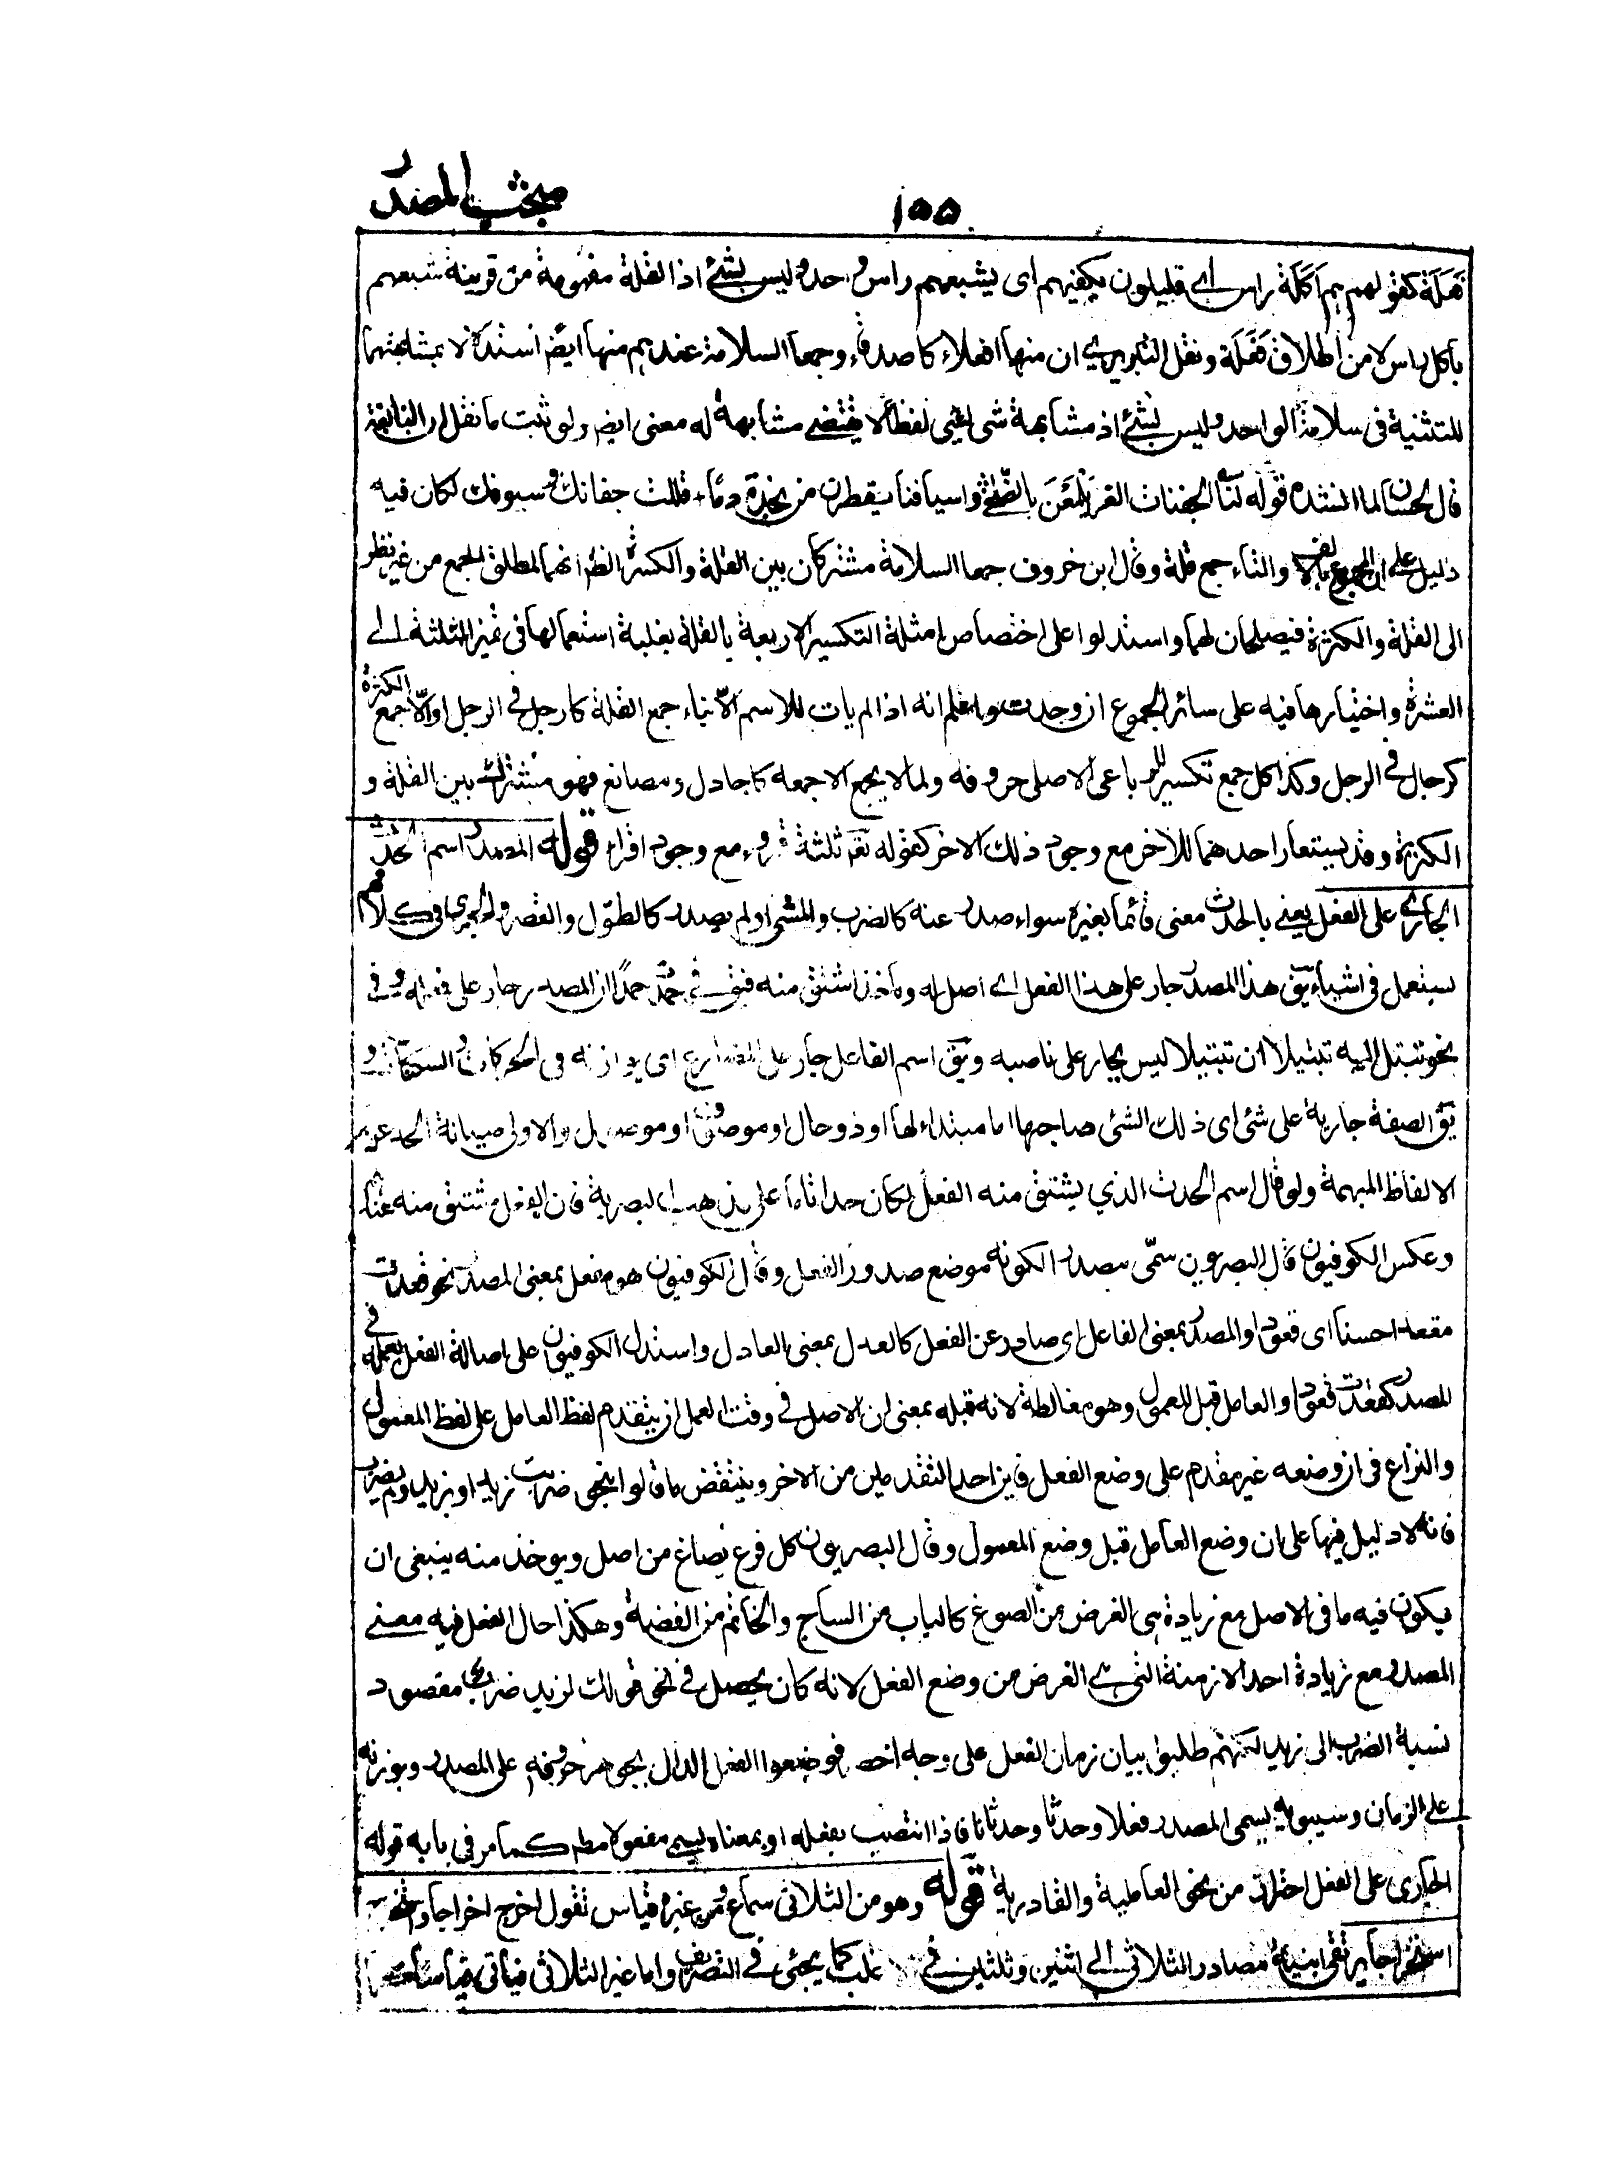 مبحث المصدر
١٥٥
فعلة كقولهم هم اكلة راس اى قليلون يكفيهم اى يشبعهم راس واحد وليس بشئ اذ القلة مفهومة من قرينة شبعهم
باكل راس لا من اطلاق فعلة ونقل التبريزى ان منها افعلاء كاصدقاء وجمعا السلامة عندهم منها ايضا استدلالا بمشابهتهما
للتثنية فى سلامة الواحد وليس بشئ اذ مشابهة شئ لشئ لفظا لا يقتضى مشابهة له معنى ايضا ولو ثبت ما نقل ان النابغة
قال لحسان لما انشده قوله لنا الجفنات الغر يلمعن بالضحى واسيافنا يقطرن من نجدة دما قللت جفانك وسيوفك لكان فيه
دليل على ان المجموع بالالف والتاء جمع قلة وقال ابن خروف جمعا السلامة مشتركان بين القلة والكثرة والظ انهما لمطلق الجمع من غير نظر
الى القلة والكثرة فيصلحان لهما واستدلوا على اختصاص امثلة التكسير الاربعة بالقلة بغلبة استعمالها فى تميز الثلثة الى
العشرة واختيارها فيه على سائر الجموع ان وجدت واعلم انه اذا لم يات للاسم الا بناء جمع القلة كارجل فى الرجل او الا جمع الكثرة
كرجال فى الرجل وكذا كل جمع تكسير للرباعى الاصلى حروفه ولما لا يجمع الا جمعه كاجادل ومصانع فهو مشترك بين القلة و
الكثرة وقد يستعار احدهما للآخر مع وجود ذلك الاخر كقوله تعم ثلثة قروء مع وجود اقراء قوله المصدر اسم الحدث
الجارى على الفعل يعنى بالحدث معنى قائما بغيره سواء صدر عنه كالضرب والمشى او لم يصدر كالطول والقصر والجرى فى كلامهم
يستعمل فى اشياء يق هذا المصدر جار على هذا الفعل اى اصل له وماخذ اشتق منه فيق فى حمد حمدا ان المصدر جار على فعله وفى
نحو تبتل اليه تبتيلا ان تبتيلا ليس بجار على ناصبه ويق اسم الفاعل جار على المضارع اى يوازنه فى الحركات والسكنات و
يق الصفة جارية على شئ اى ذلك الشئ صاحبها اما مبتداء لها او ذو حال او موصوف او موصول والاولى صيانة الحد عن
الالفاظ المبهمة ولو قال اسم الحدث الذى يشتق منه الفعل لكان حدا تاما على مذهب البصرية فان الفعل مشتق منه عندهم
وعكس الكوفيون قال البصريون سمى مصدرا لكونه موضع صدور الفعل وقال الكوفيون هو مفعل بمعنى المصدر نحو قعدت
مقعدا حسنا اى قعودا والمصدر بمعنى الفاعل اى صادر عن الفعل كالعدل بمعنى العادل واستدل الكوفيون على اصالة الفعل بعمله فى
المصدر كقعدت قعودا والعامل قبل المعمول وهو مغالطة لانه قبله بمعنى ان الاصل فى وقت العمل ان يتقدم لفظ العامل على لفظ المعمول
والنزاع فى ان وضعه غير مقدم على وضع الفعل فاين احد التقدمين من الاخر وينتقض ما قالوا بنحو ضربت زيدا وبزيد ولم يضرب
فانه لا دليل فيها على ان وضع العامل قبل وضع المعمول وقال البصريون كل فرع يصاغ من اصل ويوخذ منه ينبغى ان
يكون فيه ما فى الاصل مع زيادة هى الغرض من الصوغ كالباب من الساج والخاتم من الفضة وهكذا حال الفعل فيه معنى
المصدر مع زيادة احد الازمنة التى هى الغرض من وضع الفعل لانه كان يحصل فى نحو قولك لزيد ضرب مقصود
نسبة الضرب الى زيد لكنهم طلبوا بيان زمان الفعل على وجه اخصر فوضعوا الفعل الدال بجوهر حروفه على المصدر وبوزنه
على الزمان وسيبويه يسمى المصدر فعلا وحدثا وحدثانا فاذا انتصب بفعله او بمعناه يسمى مفعولا مط كما مر فى بابه قوله
الجارى على الفعل احتراز من نحو العالمية والقادرية قوله وهو من الثلاثى سماع ومن غيره قياس تقول اخرج اخراجا واستخرج
استخراجا يرتقى ابنية مصادر الثلاثى الى اثنين وثلثين فى الاغلب كما يجئ فى التصريف واما غير الثلاثى فياتى قياسا